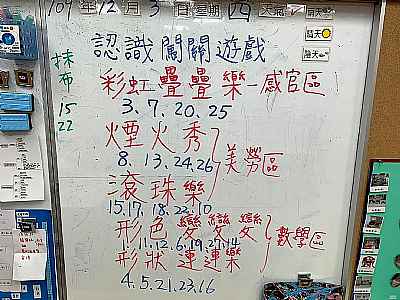 109年12月3日星期四天氣
晴天
抹布
15
22
認識闖關遊戲
彩虹疊疊樂-感官區
3.7.20.25
煙火秀
8.13.24.26
美勞區
滾珠樂
15.17.18.22.10
形色變變變
1.11.12.6.19.27.14
數學區
形狀連連樂
4.5.21.23.16